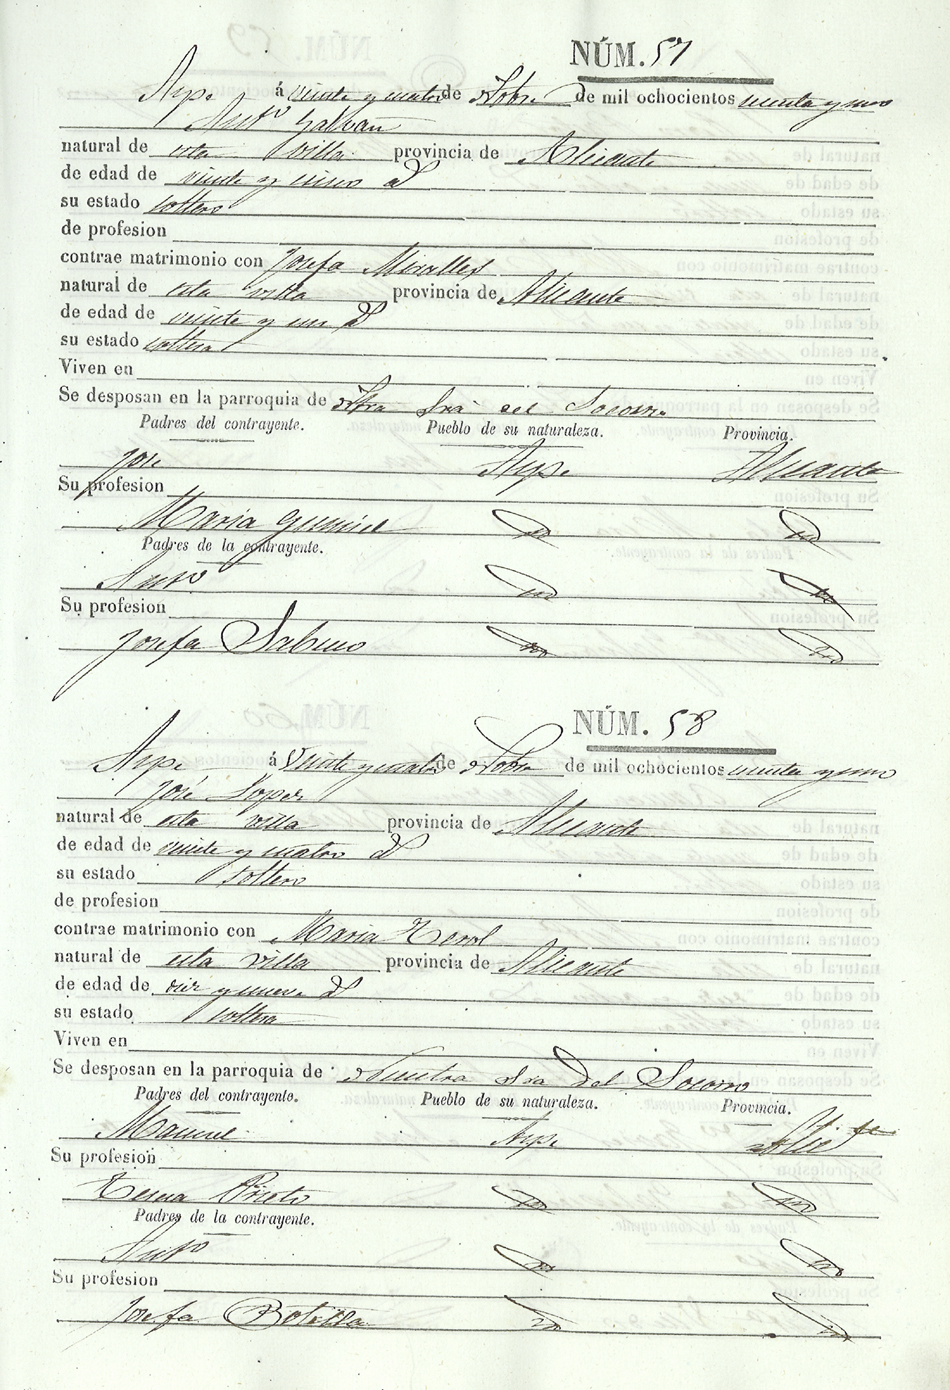 NÚM. 57
Aspe á veinte y cuatro de Obre de mil ochocientos
Antº Galvan
natural de esta villa provincia de Alicante
de edad de veinte y cinco a
su estado soltero
de profesion
contrae matrimonio con Josefa Miralles
natural de esta villa provincia de Alicante
de edad de veinte y un a
su estado soltera
Viven en
Se desposan en la parroquia de Ntra Sra del Socorro
Padres del contrayente. Pueblo de su naturaleza. Provincia.
José Aspe Alicante
Su profesion
Maria
Padres de la contrayente.
Antº
Su profesion
Josefa
NÚM. 58
Aspe á Veinte y cuatro de Obre de mil ochocientos
José Lopez
natural de esta villa provincia de Alicante
de edad de veinte y cuatro a
su estado soltero
de profesion
contrae matrimonio con Maria
natural de esta villa provincia de Alicante
de edad de diez y nueve a
su estado soltera
Viven en
Se desposan en la parroquia de Nuestra Sra del Socorro
Padres del contrayente. Pueblo de su naturaleza. Provincia.
Manuel Aspe Alicte
Su profesion
Teresa Prieto
Padres de la contrayente.
Antº
Su profesion
Josefa Botella